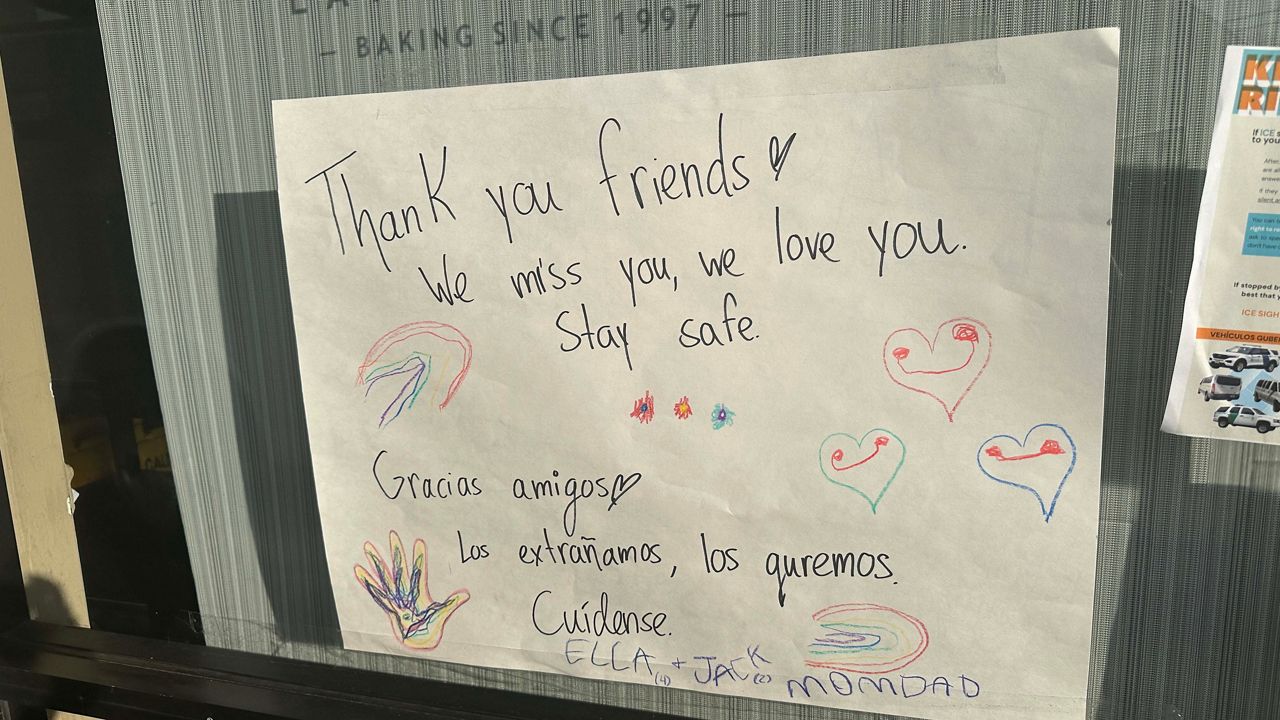 — BAKING SINCE 1997 —
Thank you friends
We miss you, we love you.
Stay safe.
Gracias amigos
Los extrañamos, los quremos.
Cuídense.
ELLA + JACK
(4) (2)
MOMDAD
If ICE
to you
After
are all
answe
if they
silent a
You can
right to re
ask to spe
don't have
If stopped b
best that y
ICE SIGH
VEHÍCULOS GUBE